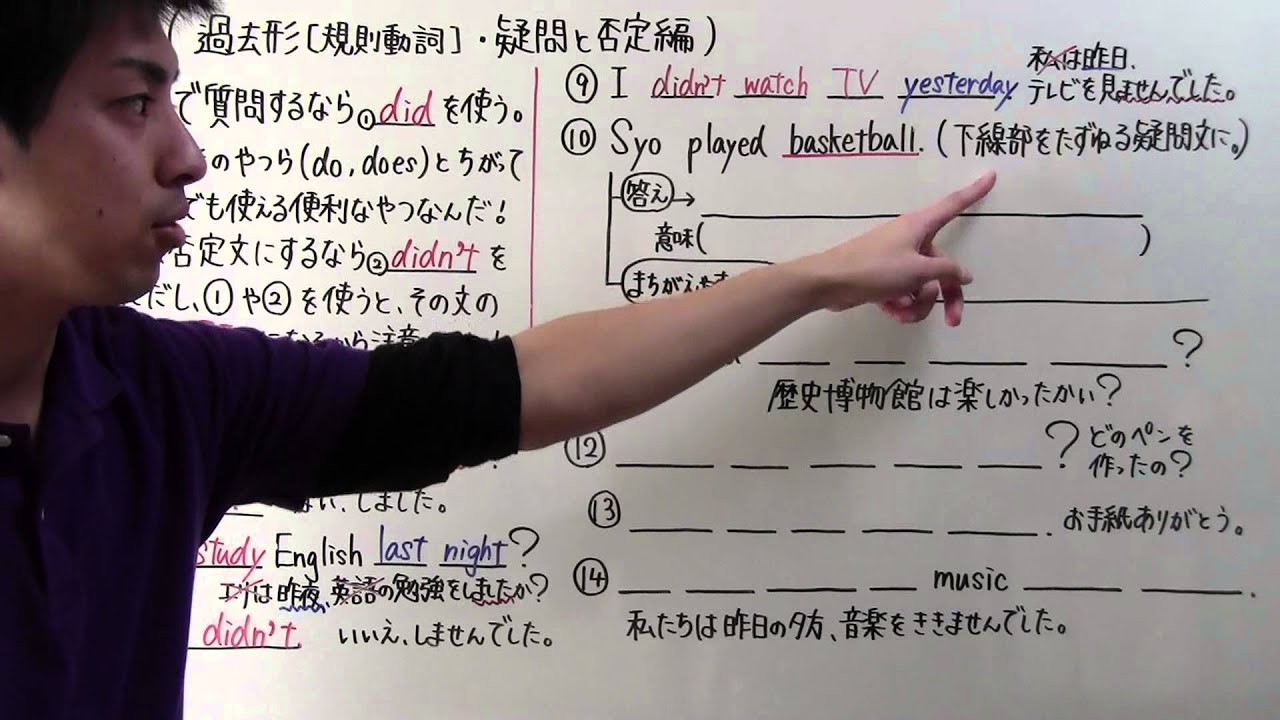 ( 過去形[規則動詞]・疑問と否定編 )
で質問するなら①didを使う。
のやつら(do, does)とちがって
でも使える便利なやつなんだ!
否定文にするなら②didn't を
だし、①や②を使うと、その文の
しました。
study English last night?
エリは昨夜、英語の勉強をしましたか?
didn't. いいえ、しませんでした。
⑨ I didn't watch TV yesterday.
私は昨日、
テレビを見ませんでした。
⑩ Syo played basketball. (下線部をたずねる疑問文に。)
答え→
意味( )
まちがえ
?
歴史博物館は楽しかったかい?
⑫ ?
どのペンを
作ったの?
⑬ . お手紙ありがとう。
⑭ music .
私たちは昨日の夕方、音楽をききませんでした。